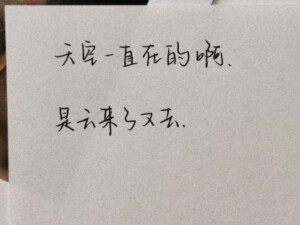 天空一直在的啊.
是云来了又去.